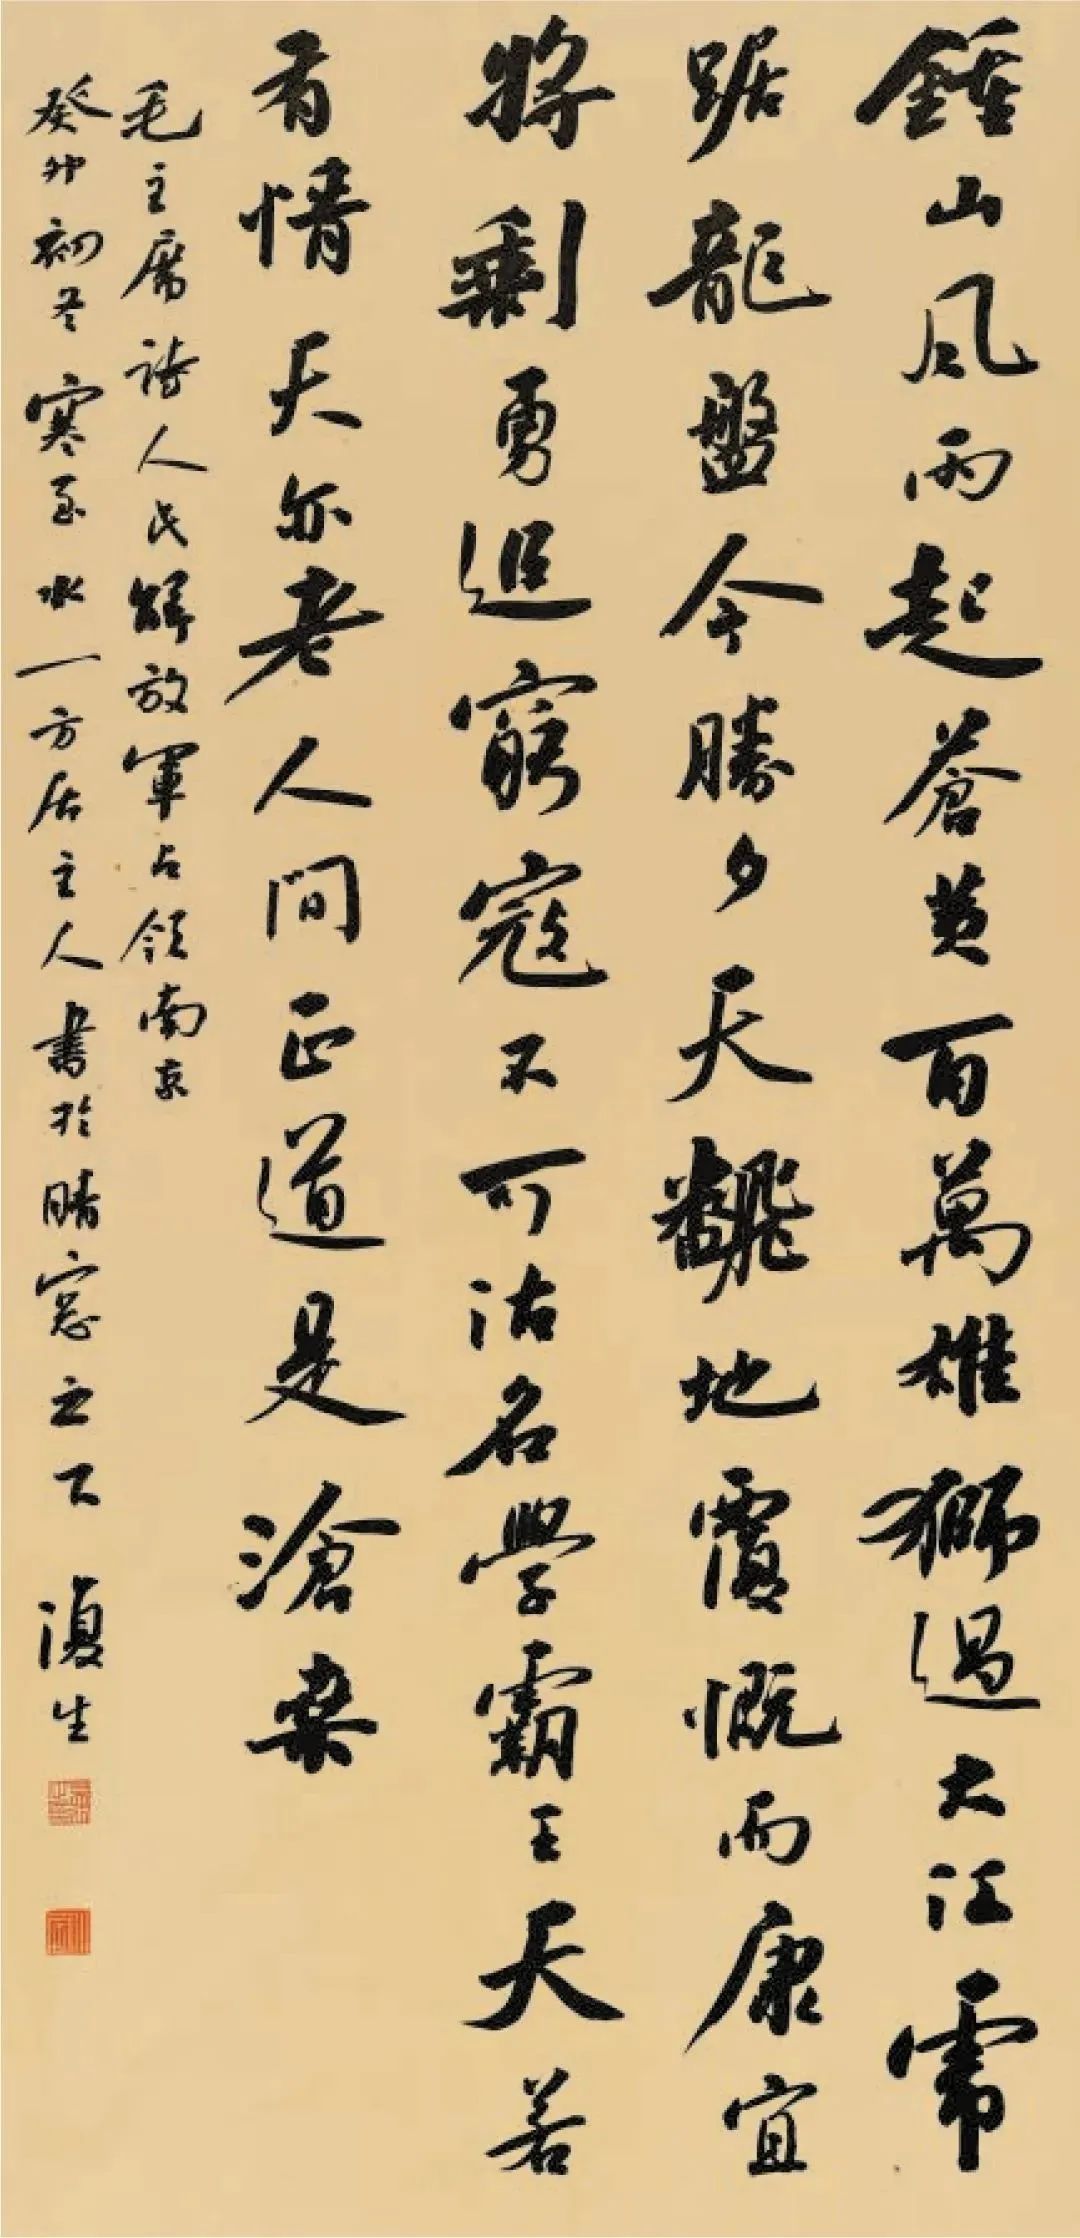 鍾山風雨起蒼黃百萬雄獅過大江虎
踞龍盤今勝夕天飜地覆慨而康宜
將剩勇追窮寇不可沽名學霸王天若
有情天亦老人間正道是滄桑
毛主席詩人民解放軍占領南京
癸卯初冬寒至水一方居主人書於晴窓之下 澓生